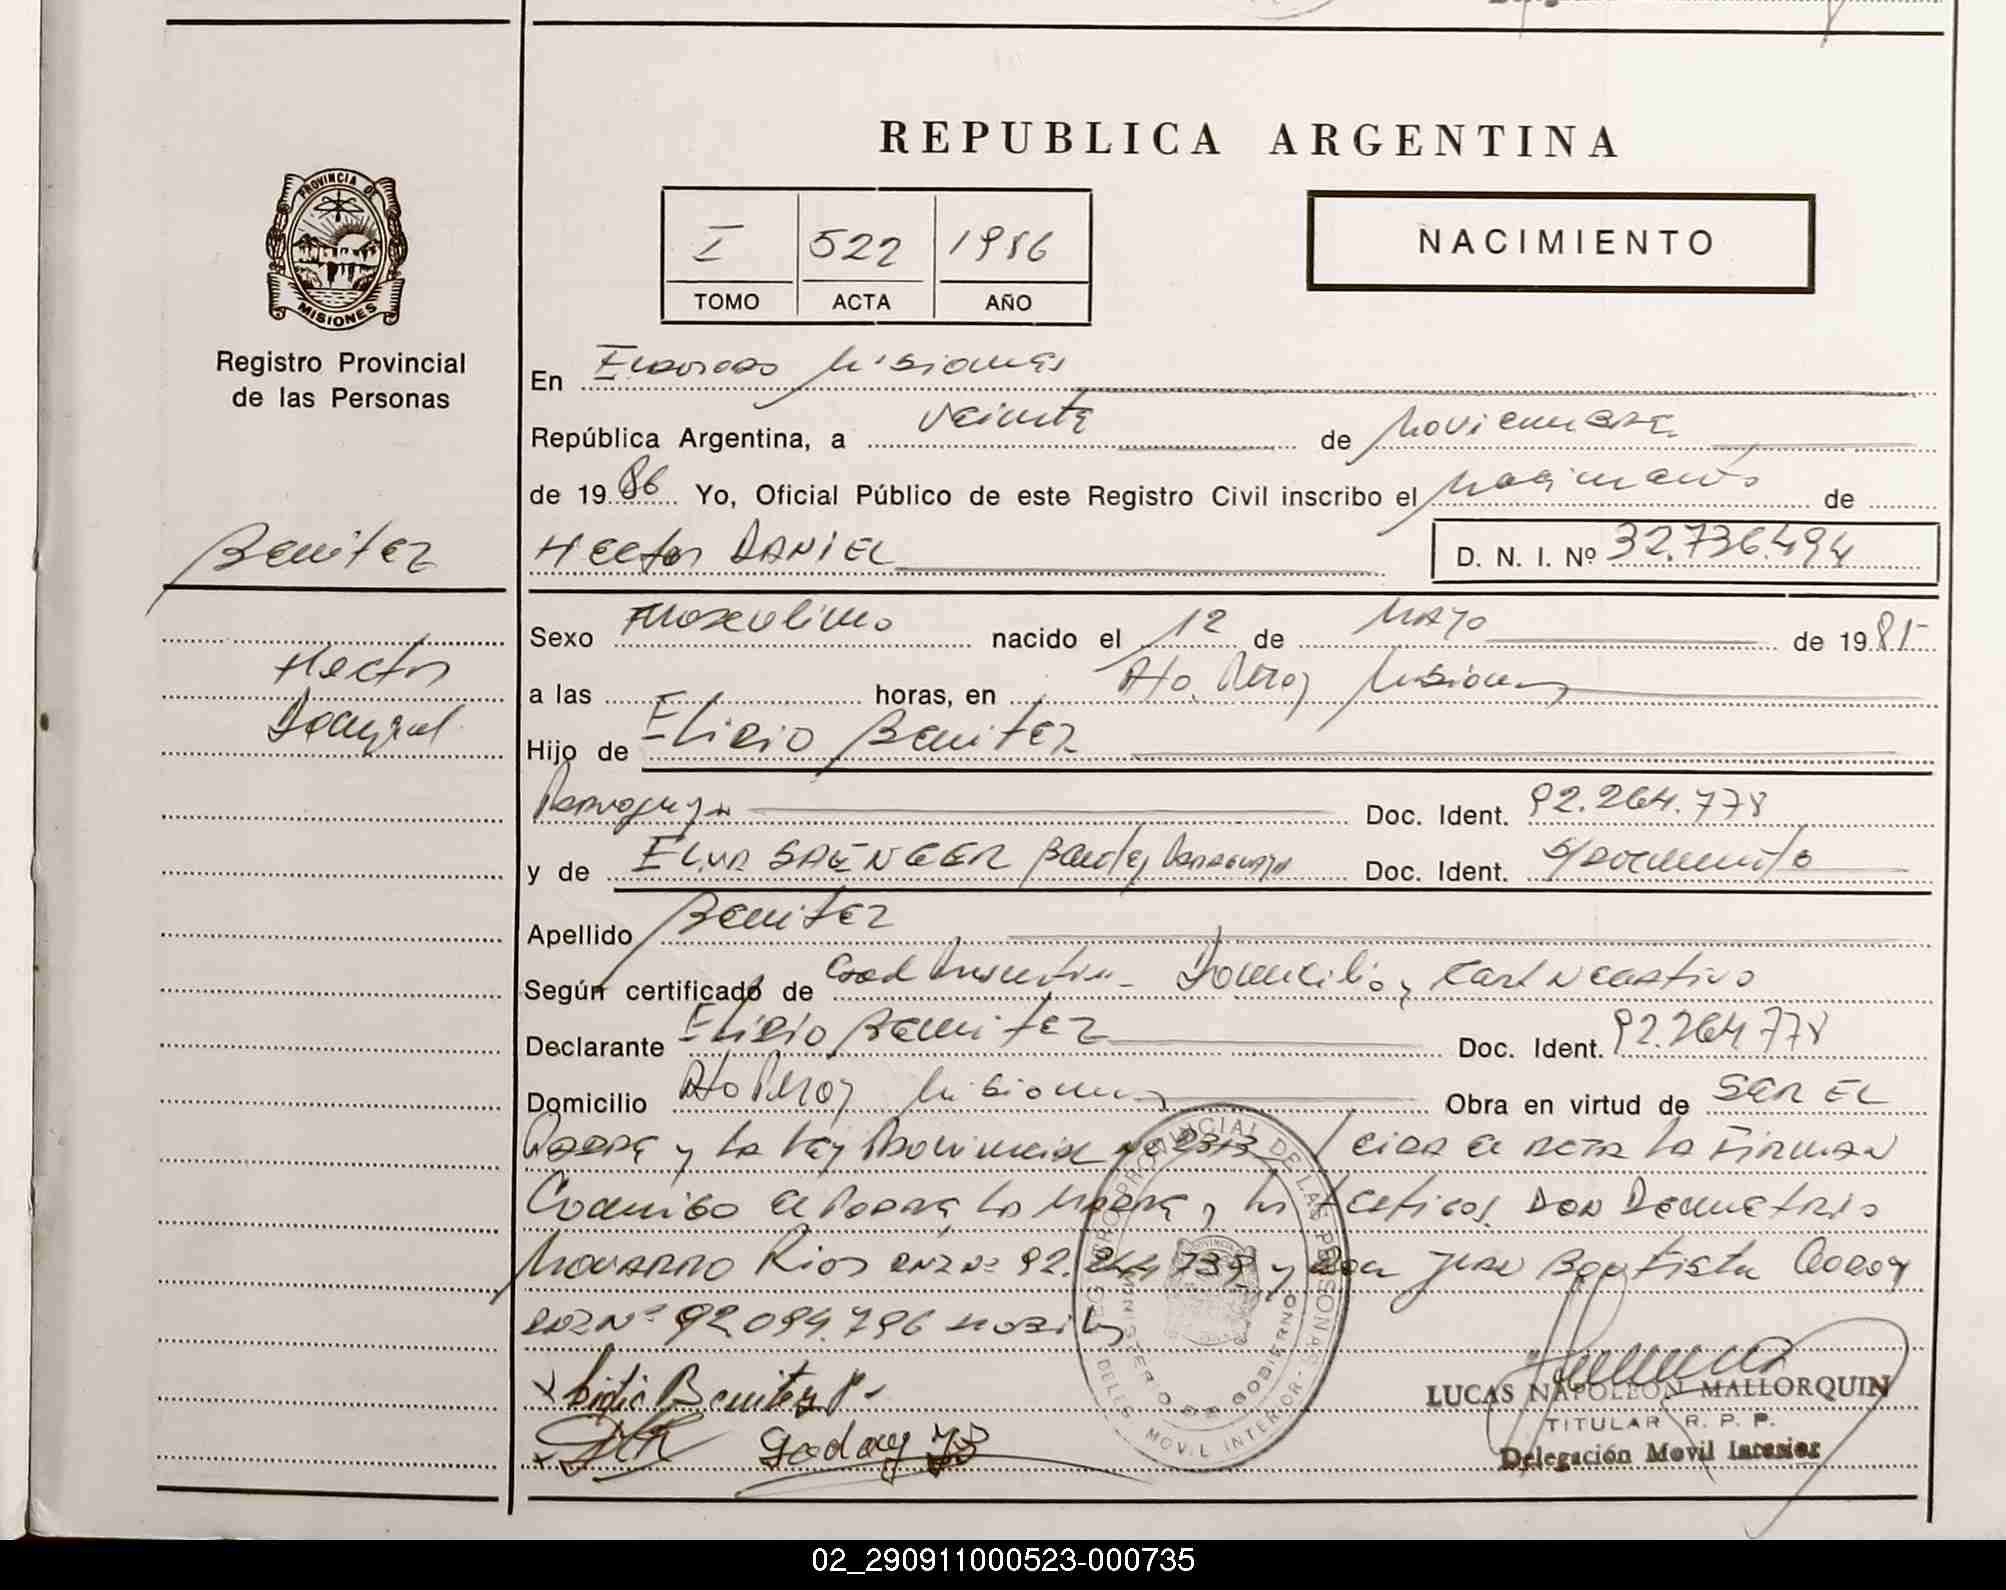 REPUBLICA ARGENTINA
PROVINCIA DE
MISIONES
Registro Provincial
de las Personas
I 522 1986
TOMO ACTA AÑO
NACIMIENTO
En Eldorado Misiones
República Argentina, a veinte de Noviembre
de 1986 Yo, Oficial Público de este Registro Civil inscribo el Nacimiento de
Benitez
Hector DANIEL D. N. I. Nº 32.736.494
Hector
Daniel
Sexo Masculino nacido el 12 de Mayo de 1985
a las horas, en Pto. Misiones
Hijo de Elidio Benitez
Paraguayo Doc. Ident. 92.264.778
y de SAENGER Paraguaya Doc. Ident. S/Documento
Apellido Benitez
Según certificado de Domicilio y
Declarante Elidio Benitez Doc. Ident. 92.264.778
Domicilio Pto Misiones Obra en virtud de SER EL
Padre y la Ley Provincial Nº leida el acta la FIRMAN
Conmigo el Padre, la Madre y los testigos Don Demetrio
Navarro Rios DNI Nº 92. y Don Juan Bautista Godoy
DNI Nº 92.094.796
Benitez
Godoy
REGISTRO PROVINCIAL DE LAS PERSONAS
MINISTERIO DE GOBIERNO
MOVIL INTERIOR
LUCAS NAPOLEON MALLORQUIN
TITULAR R. P. P.
Delegación Movil Interior
02_290911000523-000735